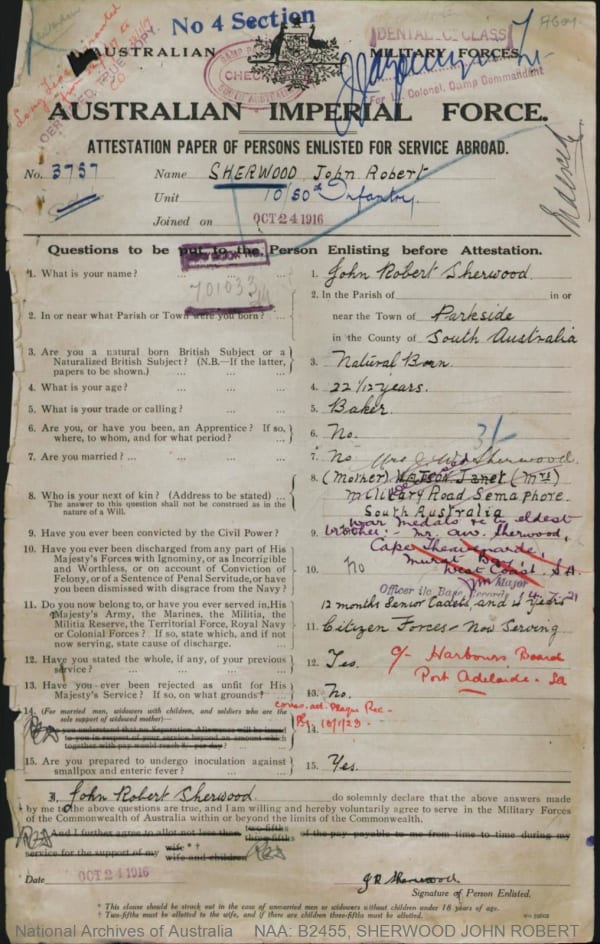 No 4 Section
AUSTRALIAN MILITARY FORCES.
DENTAL CLASS
CHECKED
SOUTH AUSTRALIA
For Lt. Colonel, Camp Commandant
AUSTRALIAN IMPERIAL FORCE.
ATTESTATION PAPER OF PERSONS ENLISTED FOR SERVICE ABROAD.
No. 3757 Name SHERWOOD John Robert
Unit 10/50th Infantry.
Joined on OCT 24 1916
Questions to be put to the Person Enlisting before Attestation.
1. What is your name? ... 1. John Robert Sherwood
701033
2. In or near what Parish or Town were you born? ... 2. In the Parish of in or
near the Town of Parkside
in the County of South Australia
3. Are you a natural born British Subject or a Naturalized British Subject? (N.B.—If the latter, papers to be shown.) 3. Natural Born.
4. What is your age? ... 4. 22 1/12 years.
5. What is your trade or calling? ... 5. Baker.
6. Are you, or have you been, an Apprentice? If so, where, to whom, and for what period? ... 6. No.
7. Are you married? ... 7. No
8. Who is your next of kin? (Address to be stated) ... 8. (Mother) Janet (Mrs)
The answer to this question shall not be construed as in the nature of a Will.
Sherwood
Military Road Semaphore
South Australia
War medals etc to eldest
brother:- Mr. Sherwood,
9. Have you ever been convicted by the Civil Power? 9.
10. Have you ever been discharged from any part of His Majesty's Forces with Ignominy, or as Incorrigible and Worthless, or on account of Conviction of Felony, or of a Sentence of Penal Servitude, or have you been dismissed with disgrace from the Navy? 10. No
West Coast. S.A.
Major
Officer i/c Base Records
11. Do you now belong to, or have you ever served in, His Majesty's Army, the Marines, the Militia, the Militia Reserve, the Territorial Force, Royal Navy or Colonial Forces? If so, state which, and if not now serving, state cause of discharge. 11. 12 months Senior Cadets, and 4 years
Citizen Forces - Now Serving
12. Have you stated the whole, if any, of your previous service? 12. Yes.
c/- Harbours Board
Port Adelaide. SA
13. Have you ever been rejected as unfit for His Majesty's Service? If so, on what grounds? 13. No.
14. (For married men, widowers with children, and soldiers who are the sole support of widowed mother)— 14.
Do you understand that no Separation Allowance will be issued to you in respect of your service beyond an amount which together with pay would reach 8s. per day?
15. Are you prepared to undergo inoculation against smallpox and enteric fever? ... 15. Yes.
I, John Robert Sherwood do solemnly declare that the above answers made
by me to the above questions are true, and I am willing and hereby voluntarily agree to serve in the Military Forces
of the Commonwealth of Australia within or beyond the limits of the Commonwealth.
And I further agree to allot not less than two-fifths three-fifths of the pay payable to me from time to time during my
service for the support of my wife *† wife and children
Date OCT 24 1916 J R Sherwood
Signature of Person Enlisted.
* This clause should be struck out in the case of unmarried men or widowers without children under 18 years of age.
† Two-fifths must be allotted to the wife, and if there are children three-fifths must be allotted.
National Archives of Australia NAA: B2455, SHERWOOD JOHN ROBERT